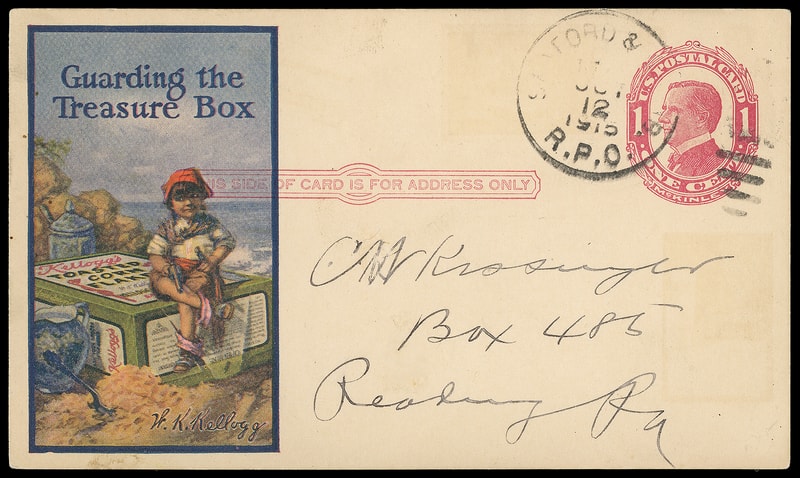 Guarding the
Treasure Box
Kellogg's
TOASTED
CORN
FLAKES
Kellogg's
W.K.Kellogg
IS SIDE OF CARD IS FOR ADDRESS ONLY
& 
OCT
12
1915
R.P.O.
U.S. POSTAL CARD
1 1
ONE CENT
McKINLEY
CW Kissinger
Box 485
Reading Pa